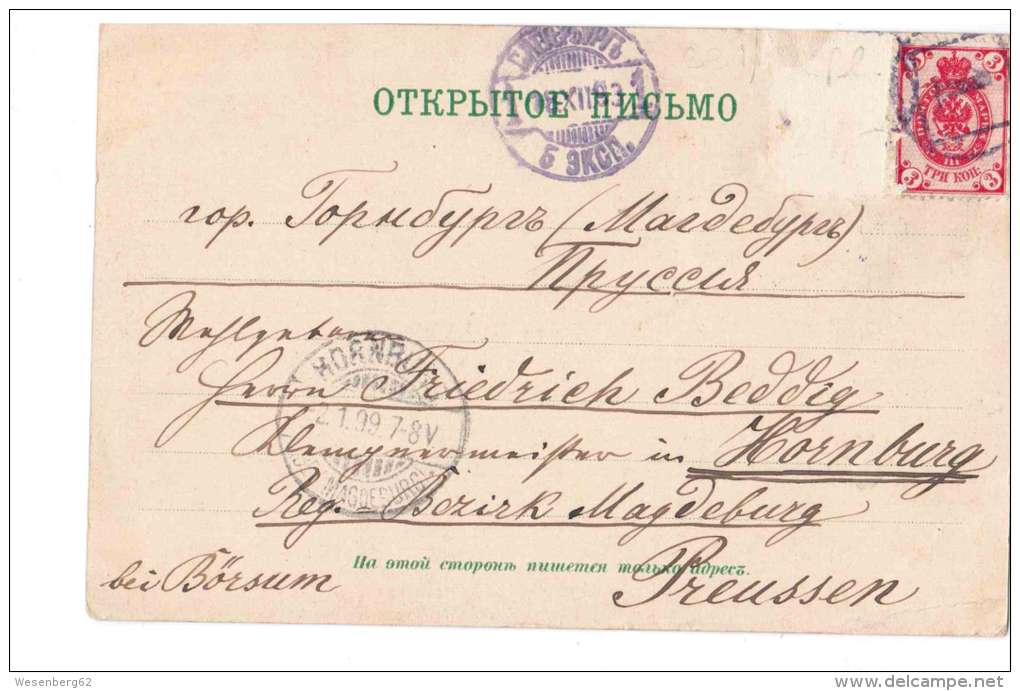 ОТКРЫТОЕ ПИСЬМО
Б ЭКСП.
3 3
ТРИ КОП.
3 3
гор. Горнбургъ (Магдебургъ)
Пруссия
Wohlgeboren
Herrn Friedrich Beddig
Klempnermeister in Hornburg
Reg. Bezirk Magdeburg
bei Börsum
Preussen
HORNBURG
2.1.99 7-8V
MAGDEBURG
На этой сторонѣ пишется только адресъ.
Wesenberg62